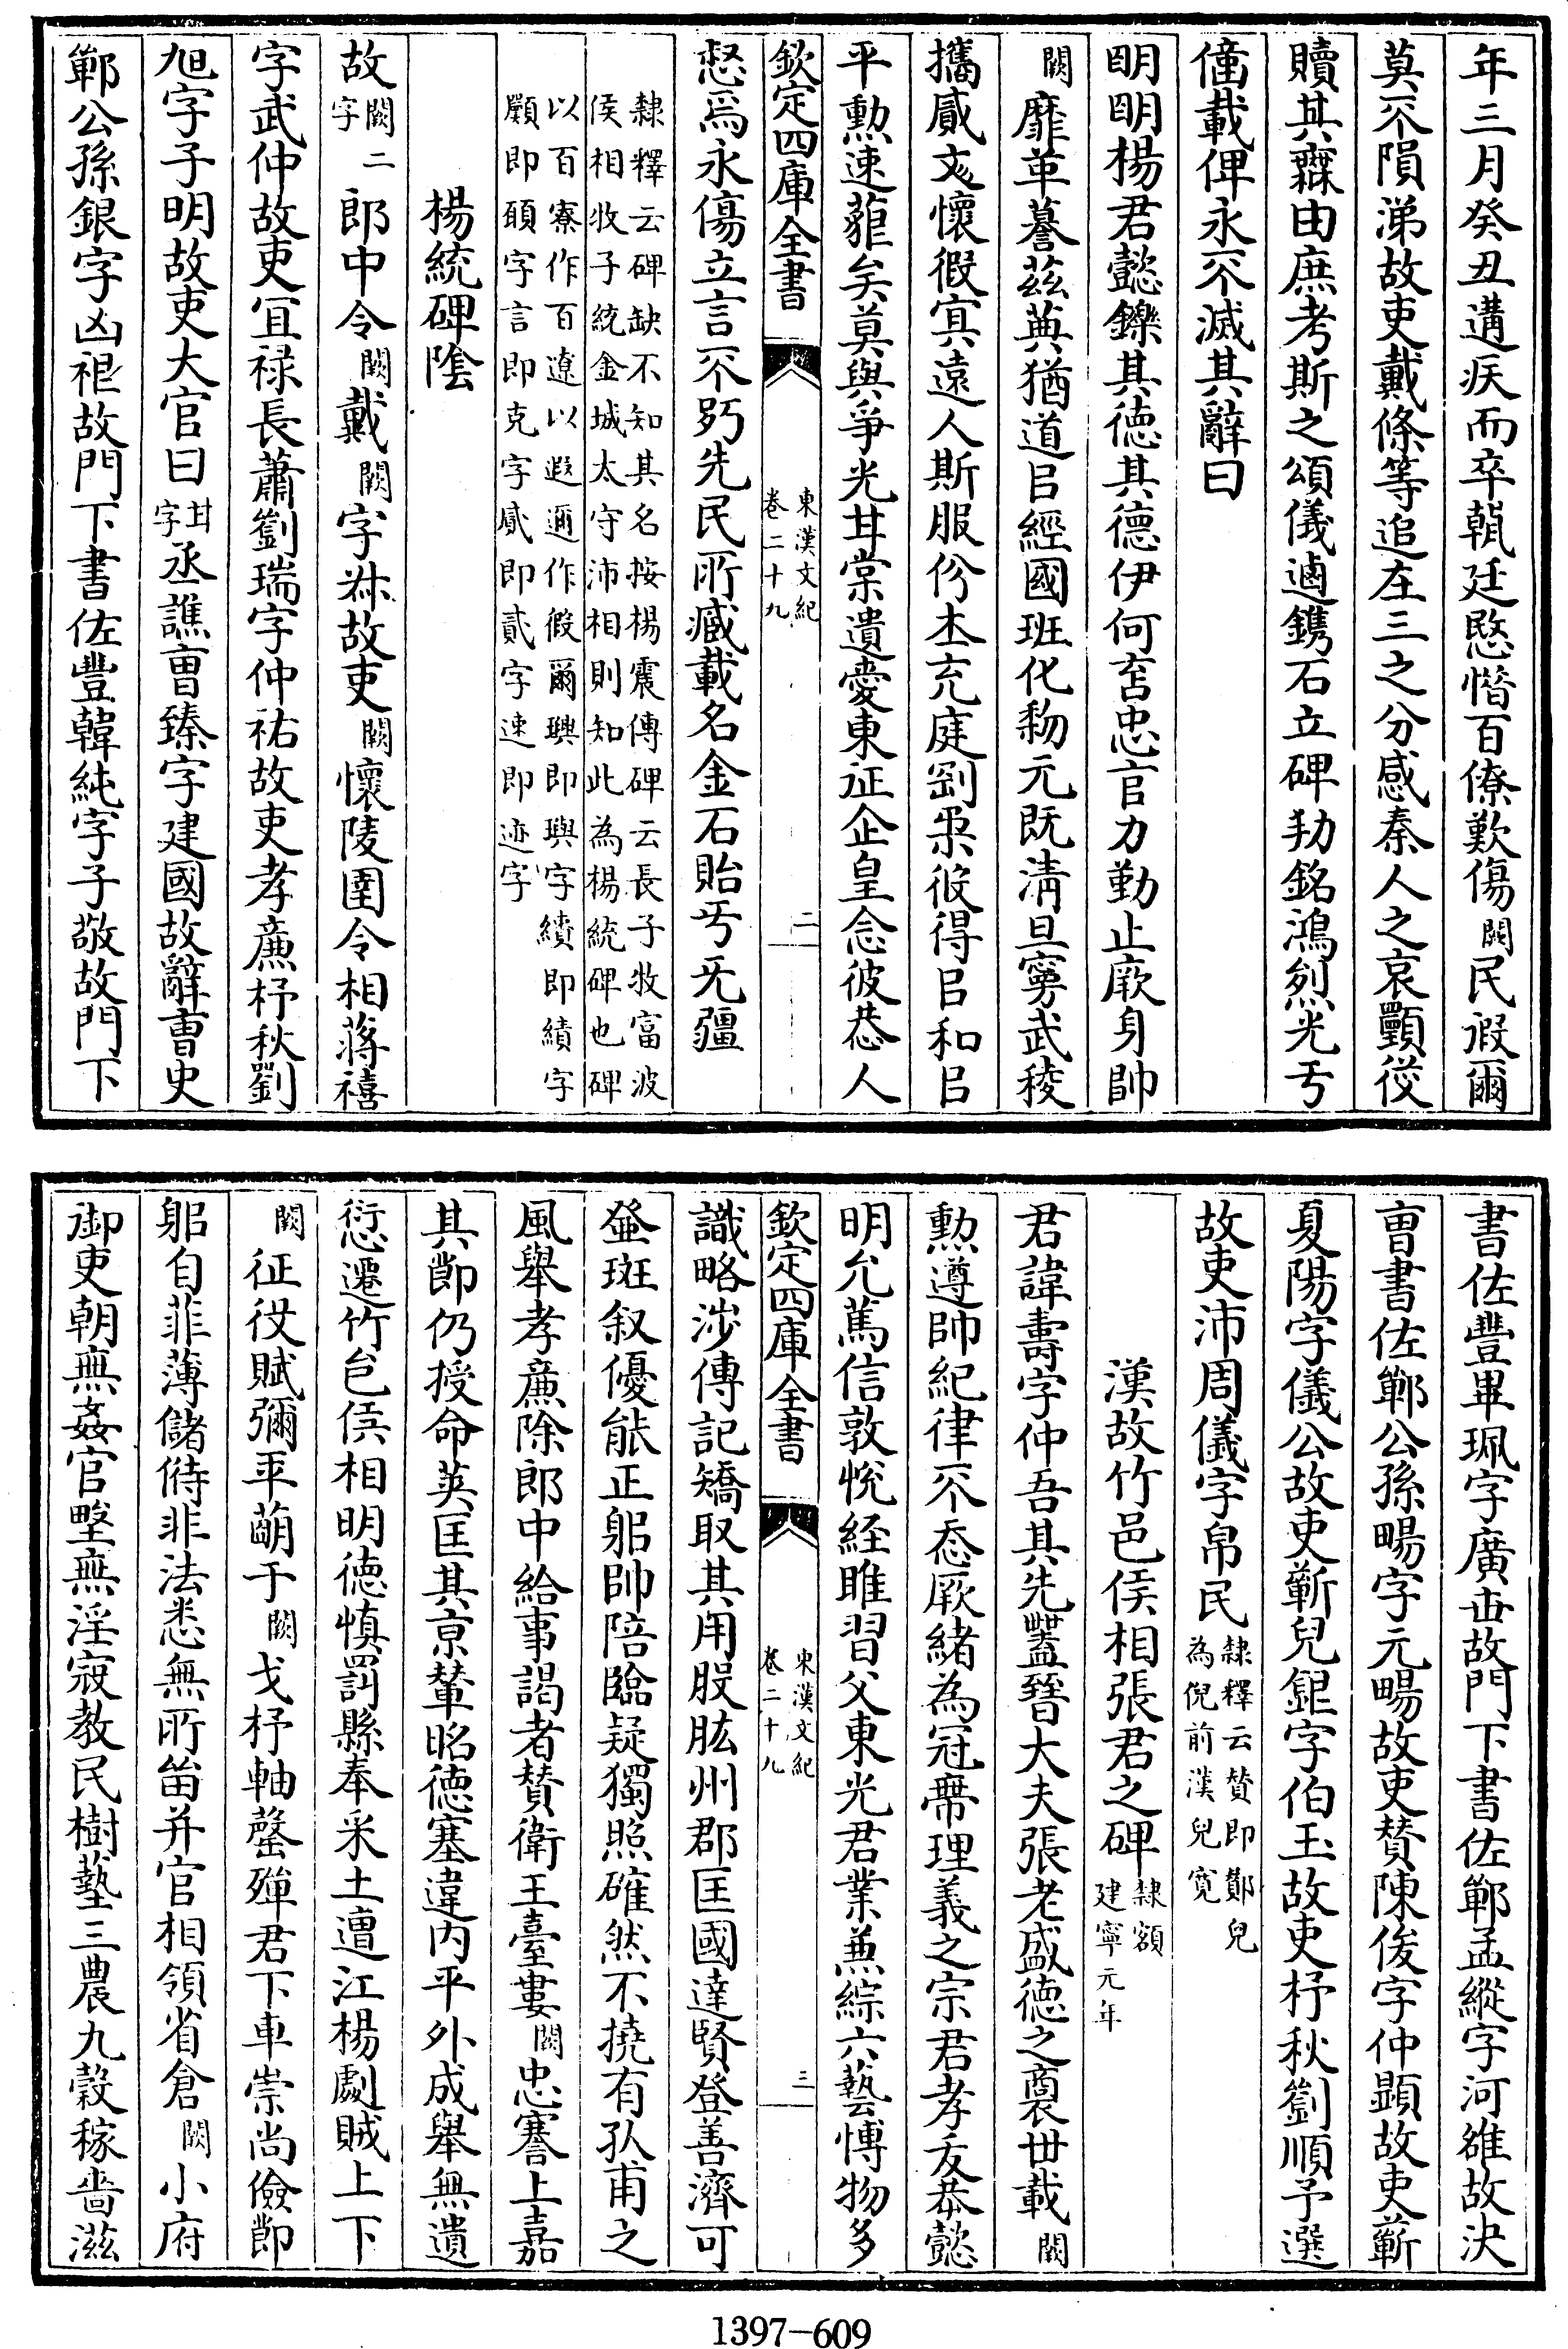 年三月癸丑遘疾而卒朝廷愍惜百僚歎傷闕民假爾
莫不隕涕故吏戴條等追在三之分感秦人之哀顨從
贖其無由庶考斯之頌儀遹鐫石立碑勒銘鴻烈光于
億載俾永不滅其辭曰
明明楊君懿鑠其德其德伊何克忠官力勤止厥身帥
闕靡革蹇茲英猶道㠯經國班化利元既清且寧武稜
攜貳文懷假㝠遠人斯服份本充庭劉惈攸得㠯和㠯
平勳速藐矣莫與爭光甘棠遺愛東征企皇念彼恭人
欽定四庫全書
東漢文紀
卷二十九
二
惄焉永傷立言不朽先民所臧載名金石貽于无疆
隸釋云碑缺不知其名按楊震傳碑云長子牧富波
侯相牧子統金城太守沛相則知此為楊統碑也碑
以百寮作百遼以遐邇作假爾璵即與字績即績字
顨即願字言即克字貳即貳字速即迹字
楊統碑隂
故闕二
字郎中令闕戴闕字叔故吏闕懷陵圉令相蔣禧
字武仲故吏冝禄長蕭劉瑞字仲祐故吏孝廉杼秋劉
旭字子明故吏大官曰甘
字丞譙曺臻字建國故辭曺史
鄲公孫銀字凶祀故門下書佐豐韓純字子敬故門下
書佐豐畢珮字廣世故門下書佐鄲孟縱字河雒故決
曺書佐鄲公孫暘字元暘故吏賛陳俊字仲顯故吏蘄
夏陽字儀公故吏蘄兒銀字伯玉故吏杼秋劉順予選
故吏沛周儀字帛民隸釋云賛即酇兒
為倪前漢兒寛
漢故竹邑侯相張君之碑隸額
建寧元年
君諱壽字仲吾其先蓋晉大夫張老盛德之裔世載闕
勳遵帥紀律不忝厥緒為冠帶理義之宗君孝友恭懿
明允篤信敦悅経雎習父東光君業兼綜六藝愽物多
欽定四庫全書
東漢文紀
卷二十九
三
識略涉傳記矯取其用股肱州郡匡國達賢登善濟可
登斑叙優能正躬帥陪臨疑獨照確然不撓有孔甫之
風舉孝廉除郎中給事謁者賛衛王臺婁闕忠謇上嘉
其節仍授命英匡其京輦昭德塞違内平外成舉無遺
愆遷竹邑侯相明德慎罰縣奉采土遭江楊劇賊上下
闕征役賦彌平萌于闕戈杼軸罄殫君下車崇尚儉節
躬自菲薄儲偫非法悉無所留并官相領省倉闕小府
御吏朝無姦官壄無淫寇教民樹藝三農九穀稼啬滋
1397-609